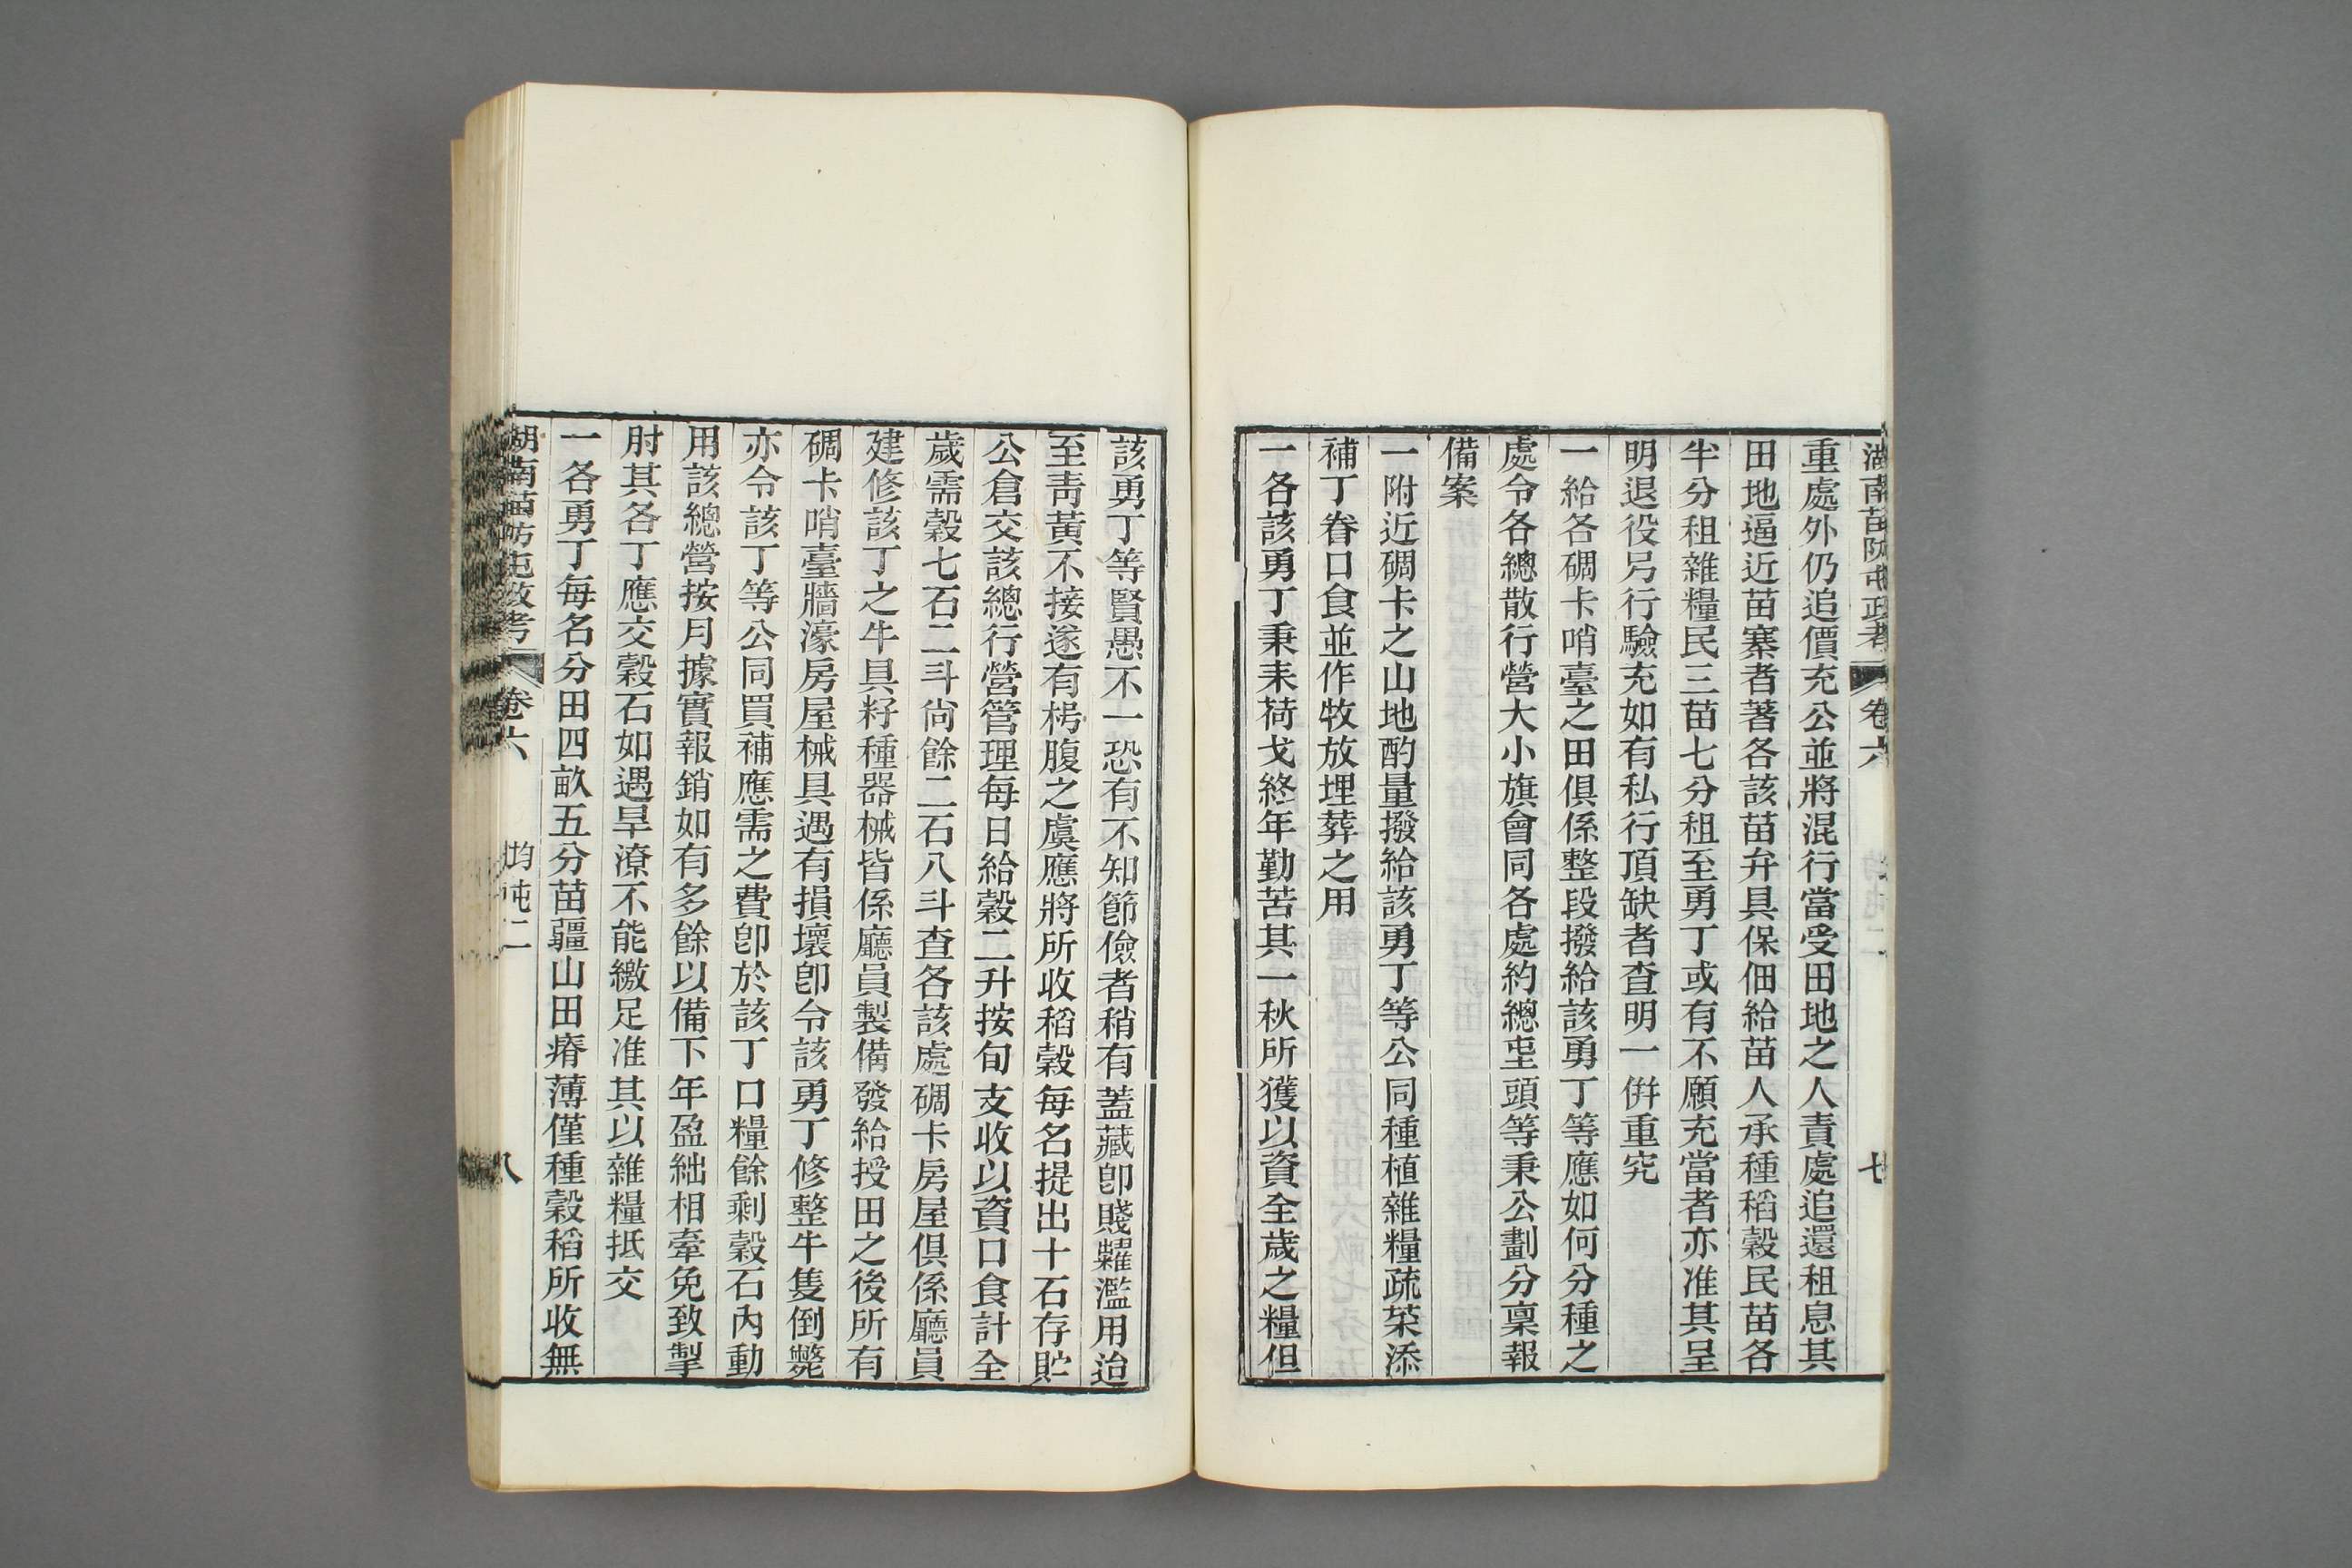 湖南苗防屯政考 卷六 七
重處外仍追價充公並將混行當受田地之人責處追還租息其
田地逼近苗寨者著各該苗弁具保佃給苗人承種稻穀民苗各
半分租雜糧民三苗七分租至勇丁或有不願充當者亦准其呈
明退役另行驗充如有私行頂缺者查明一併重究
一給各碉卡哨臺之田俱係整段撥給該勇丁等應如何分種之
處令各總散行營大小旗會同各處約總屯頭等秉公劃分稟報
備案
一附近碉卡之山地酌量撥給該勇丁等公同種植雜糧疏菜添
補丁眷口食並作牧放埋葬之用
一各該勇丁秉耒荷戈終年勤苦其一秋所獲以資全歲之糧但
該勇丁等賢愚不一恐有不知節儉者稍有蓋藏卽賤糶濫用迨
至靑黃不接遂有枵腹之虞應將所收稻穀每名提出十石存貯
公倉交該總行營管理每日給穀二升按旬支收以資口食計全
歲需穀七石二斗尙餘二石八斗查各該處碉卡房屋俱係廳員
建修該丁之牛具籽種器械皆係廳員製備發給授田之後所有
碉卡哨臺牆濠房屋械具遇有損壞卽令該勇丁修整牛隻倒斃
亦令該丁等公同買補應需之費卽於該丁口糧餘剩穀石內動
用該總營按月據實報銷如有多餘以備下年盈絀相牽免致掣
肘其各丁應交穀石如遇旱潦不能繳足准其以雜糧抵交
一各勇丁每名分田四畝五分苗疆山田瘠薄僅種穀稻所收無
湖南苗防屯政考 卷六 均屯二 八